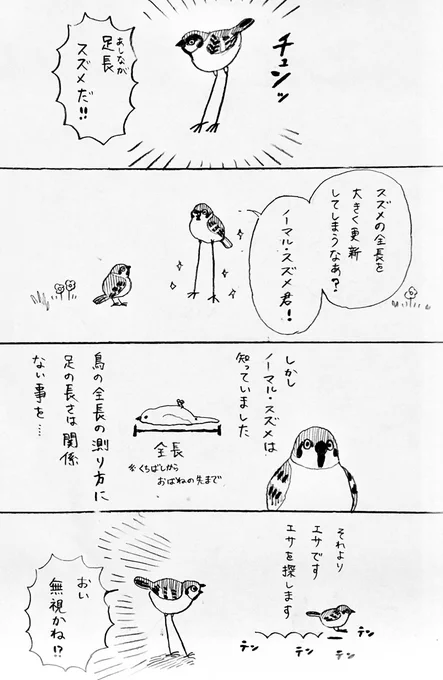 チュンッ
足長
あしなが
スズメだ!!
スズメの全長を
大きく更新
してしまうなあ?
ノーマル・スズメ君!
しかし
ノーマル・スズメは
知っていました
全長
※くちばしから
おばねの先まで
鳥の全長の測り方に
足の長さは関係
ない事を…
それより
エサです
エサを探します
テン
テン
テン
テン
おい
無視かね!?